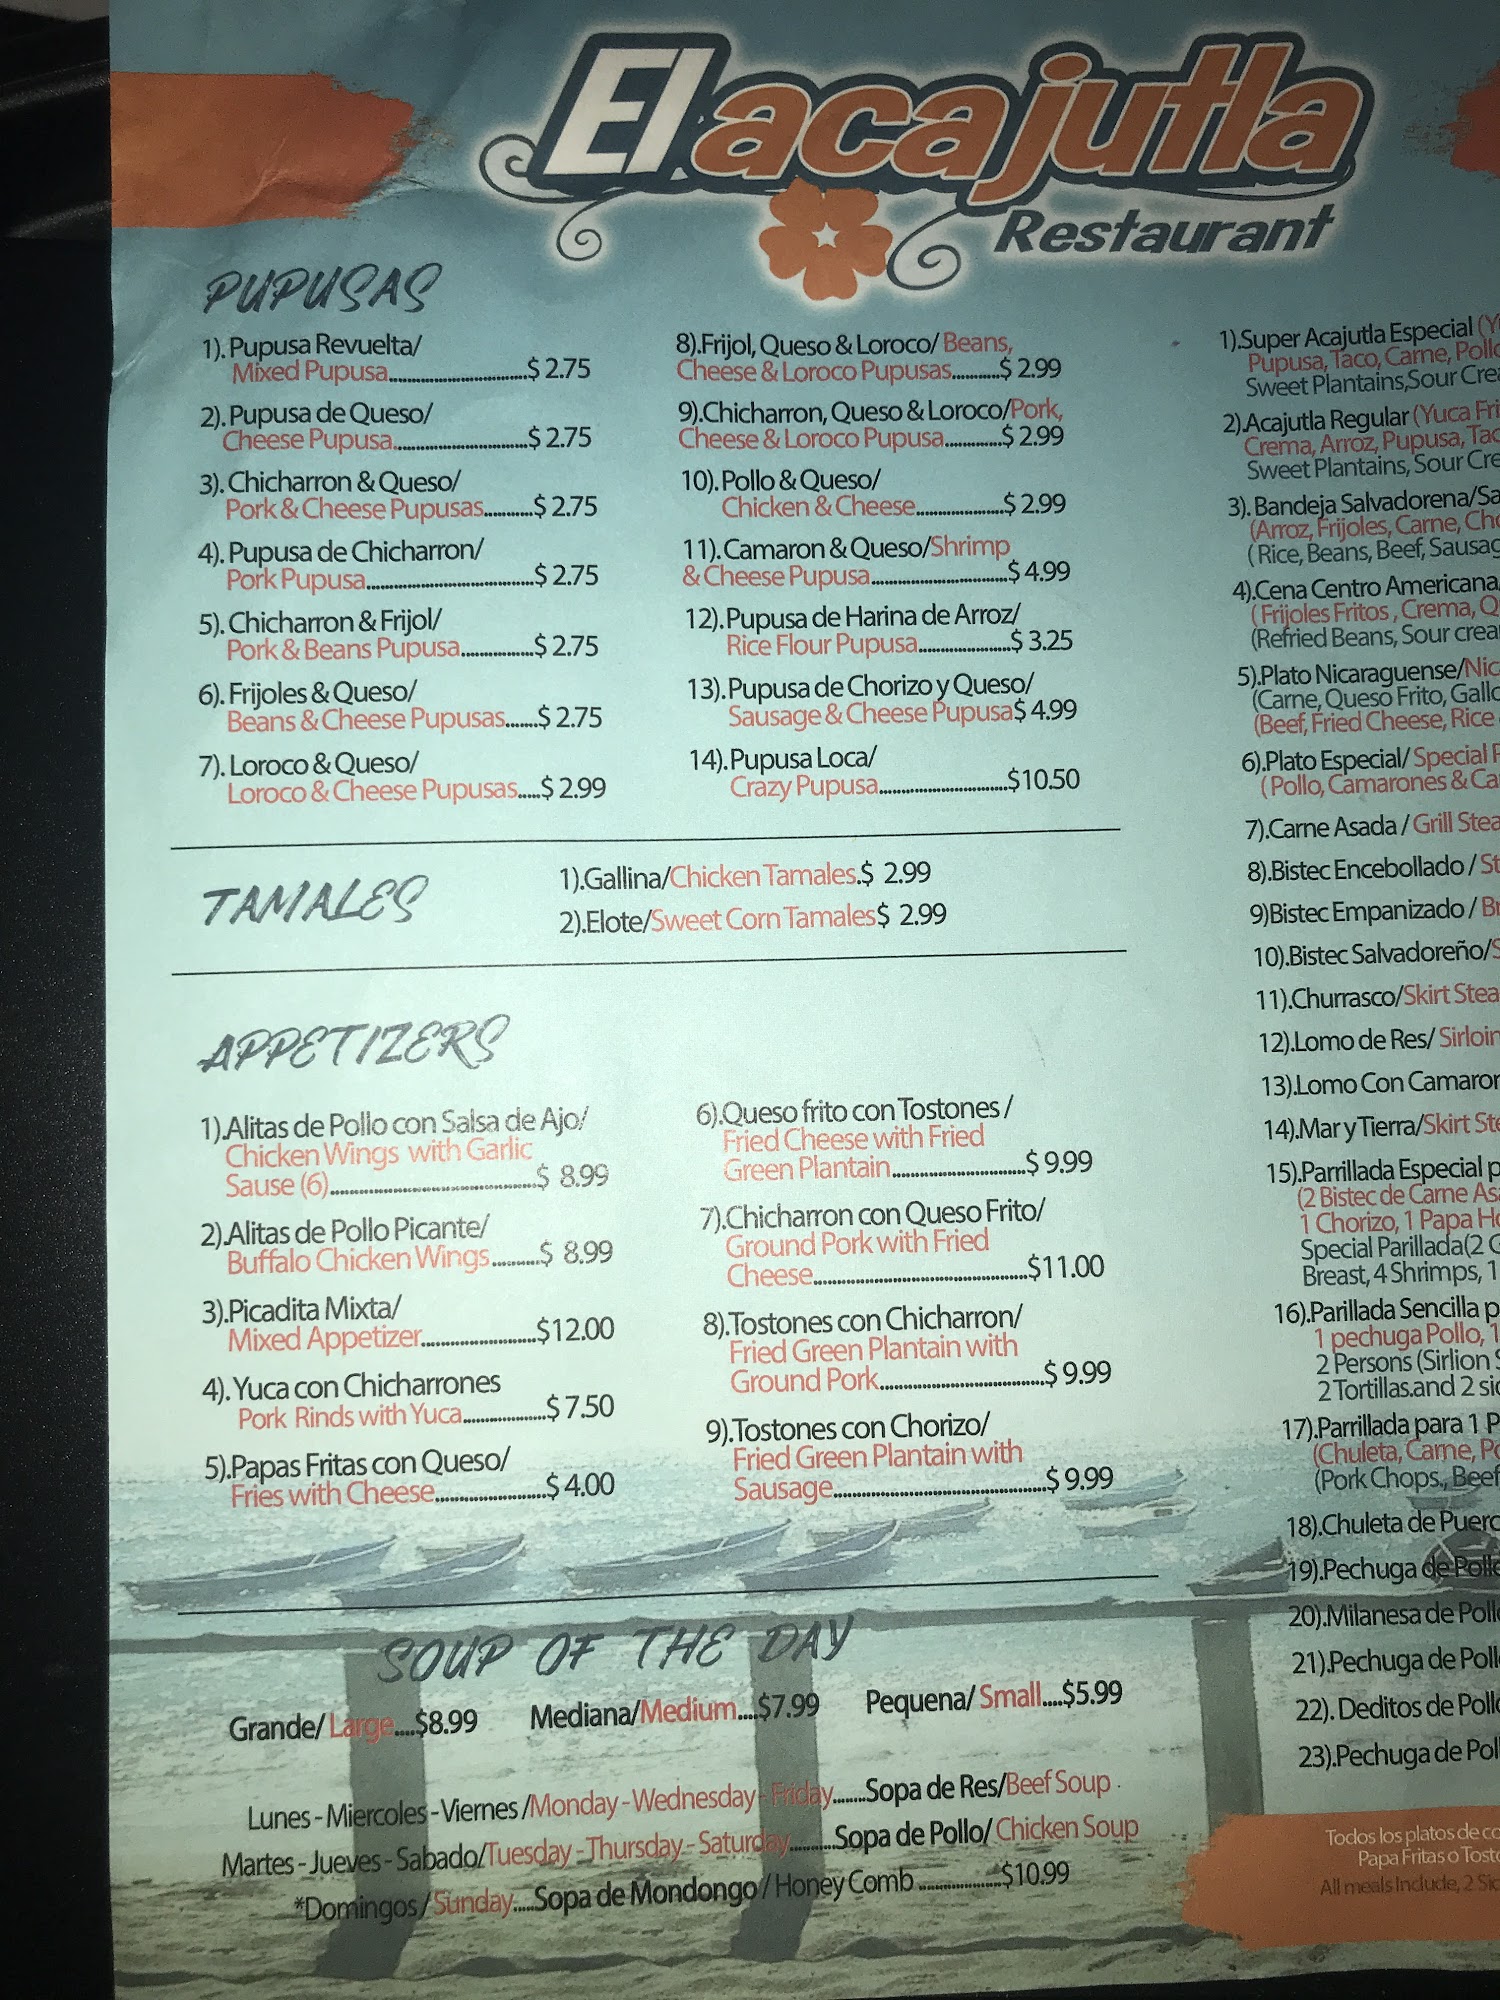 El acajutla
Restaurant
PUPUSAS
1). Pupusa Revuelta/
Mixed Pupusa..............................$ 2.75
2). Pupusa de Queso/
Cheese Pupusa.............................$ 2.75
3). Chicharron & Queso/
Pork & Cheese Pupusas...........$ 2.75
4). Pupusa de Chicharron/
Pork Pupusa.....................................$ 2.75
5). Chicharron & Frijol/
Pork & Beans Pupusa................$ 2.75
6). Frijoles & Queso/
Beans & Cheese Pupusas.......$ 2.75
7). Loroco & Queso/
Loroco & Cheese Pupusas.....$ 2.99
8).Frijol, Queso & Loroco/ Beans,
Cheese & Loroco Pupusas..........$ 2.99
9).Chicharron, Queso & Loroco/Pork,
Cheese & Loroco Pupusa............$ 2.99
10). Pollo & Queso/
Chicken & Cheese...................$ 2.99
11). Camaron & Queso/Shrimp
& Cheese Pupusa..............................$ 4.99
12). Pupusa de Harina de Arroz/
Rice Flour Pupusa....................$ 3.25
13). Pupusa de Chorizo y Queso/
Sausage & Cheese Pupusa$ 4.99
14). Pupusa Loca/
Crazy Pupusa............................$10.50
TAMALES
1).Gallina/Chicken Tamales.$ 2.99
2).Elote/Sweet Corn Tamales$ 2.99
APPETIZERS
1).Alitas de Pollo con Salsa de Ajo/
Chicken Wings with Garlic
Sause (6)..............................................$ 8.99
2).Alitas de Pollo Picante/
Buffalo Chicken Wings..........$ 8.99
3).Picadita Mixta/
Mixed Appetizer.........................$12.00
4). Yuca con Chicharrones
Pork Rinds with Yuca..................$ 7.50
5).Papas Fritas con Queso/
Fries with Cheese........................$ 4.00
6).Queso frito con Tostones /
Fried Cheese with Fried
Green Plantain.............................$ 9.99
7).Chicharron con Queso Frito/
Ground Pork with Fried
Cheese...............................................$11.00
8).Tostones con Chicharron/
Fried Green Plantain with
Ground Pork....................................$ 9.99
9).Tostones con Chorizo/
Fried Green Plantain with
Sausage..............................................$ 9.99
SOUP OF THE DAY
Grande/ Large....$8.99 Mediana/Medium....$7.99 Pequena/ Small....$5.99
Lunes - Miercoles - Viernes /Monday - Wednesday - Friday.......Sopa de Res/Beef Soup
Martes - Jueves - Sabado/Tuesday - Thursday - Saturday..........Sopa de Pollo/ Chicken Soup
*Domingos / Sunday.....Sopa de Mondongo / Honey Comb ..................$10.99
1).Super Acajutla Especial
Pupusa, Taco, Carne,
Sweet Plantains,Sour
2).Acajutla Regular (Yuca
Crema, Arroz, Pupusa,
Sweet Plantains, Sour
3). Bandeja Salvadorena/
(Arroz, Frijoles, Carne,
( Rice, Beans, Beef,
4).Cena Centro Americana
( Frijoles Fritos , Crema,
(Refried Beans, Sour
5).Plato Nicaraguense/
(Carne, Queso Frito,
(Beef, Fried Cheese, Rice
6).Plato Especial/ Special
( Pollo, Camarones &
7).Carne Asada / Grill
8).Bistec Encebollado /
9)Bistec Empanizado /
10).Bistec Salvadoreño/
11).Churrasco/Skirt
12).Lomo de Res/
13).Lomo Con
14).Mar y Tierra/Skirt
15).Parrillada Especial
(2 Bistec de Carne
1 Chorizo, 1 Papa
Special Parillada(2
Breast, 4 Shrimps, 1
16).Parillada Sencilla
1 pechuga Pollo, 1
2 Persons (Sirlion
2 Tortillas.and 2
17).Parrillada para 1
(Chuleta, Carne,
(Pork Chops., Beef
18).Chuleta de
19).Pechuga de
20).Milanesa de
21).Pechuga de
22). Deditos de
23).Pechuga de
Todos los platos de
Papa Fritas o
All meals Include, 2